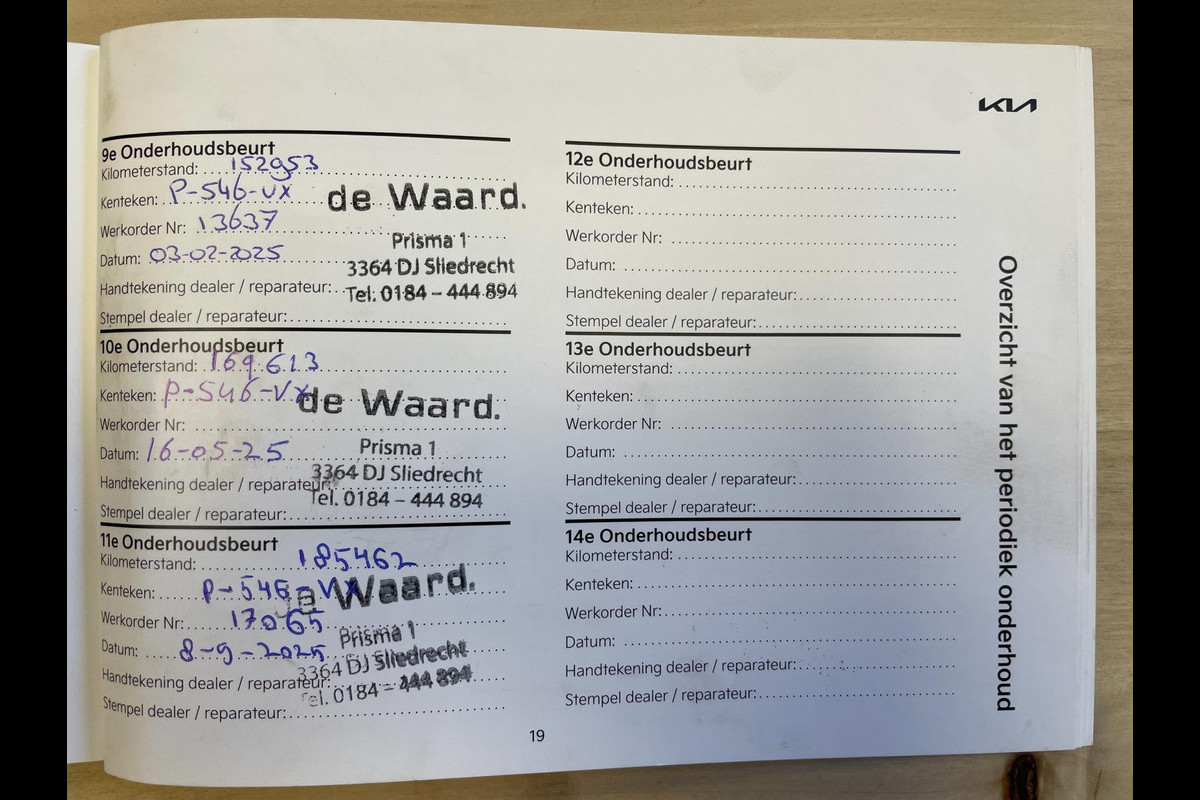 KIA
9e Onderhoudsbeurt
Kilometerstand: 152953
Kenteken: P-546-VX
Werkorder Nr: 13637
Datum: 03-02-2025
Handtekening dealer / reparateur:
Stempel dealer / reparateur:
de Waard.
Prisma 1
3364 DJ Sliedrecht
Tel. 0184 – 444 894
10e Onderhoudsbeurt
Kilometerstand: 169.613
Kenteken: P-546-VX
Werkorder Nr:
Datum: 16-05-25
Handtekening dealer / reparateur:
Stempel dealer / reparateur:
de Waard.
Prisma 1
3364 DJ Sliedrecht
Tel. 0184 – 444 894
11e Onderhoudsbeurt
Kilometerstand: 185462
Kenteken: P-546-VX
Werkorder Nr: 17065
Datum: 8-9-2025
Handtekening dealer / reparateur:
Stempel dealer / reparateur:
de Waard.
Prisma 1
3364 DJ Sliedrecht
Tel. 0184 – 444 894
12e Onderhoudsbeurt
Kilometerstand:
Kenteken:
Werkorder Nr:
Datum:
Handtekening dealer / reparateur:
Stempel dealer / reparateur:
13e Onderhoudsbeurt
Kilometerstand:
Kenteken:
Werkorder Nr:
Datum:
Handtekening dealer / reparateur:
Stempel dealer / reparateur:
14e Onderhoudsbeurt
Kilometerstand:
Kenteken:
Werkorder Nr:
Datum:
Handtekening dealer / reparateur:
Stempel dealer / reparateur:
Overzicht van het periodiek onderhoud
19